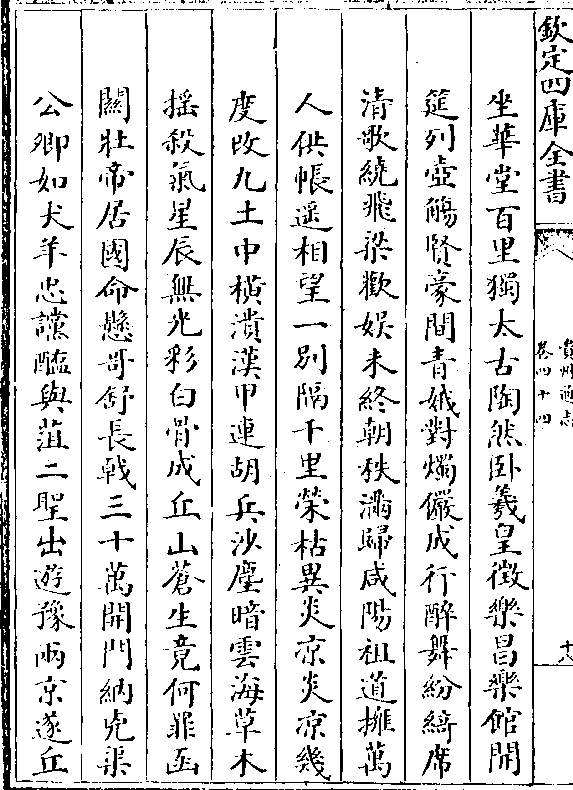 欽定四庫全書
貴州通志
卷四十四
十八
坐華堂百里獨太古陶然卧羲皇徵樂昌樂館開
筵列壺觴賢豪間青娥對燭儼成行醉舞紛綺席
清歌繞飛梁歡娱未終朝秩滿歸咸陽祖道擁萬
人供帳遥相望一别隔千里榮枯異炎凉炎凉幾
度改九土中橫潰漢甲連胡兵沙塵暗雲海草木
揺殺氣星辰無光彩白骨成丘山蒼生竟何罪函
關壯帝居國命懸哥舒長戟三十萬開門納兇渠
公卿如犬羊忠讜醢與菹二聖出遊豫兩京遂丘